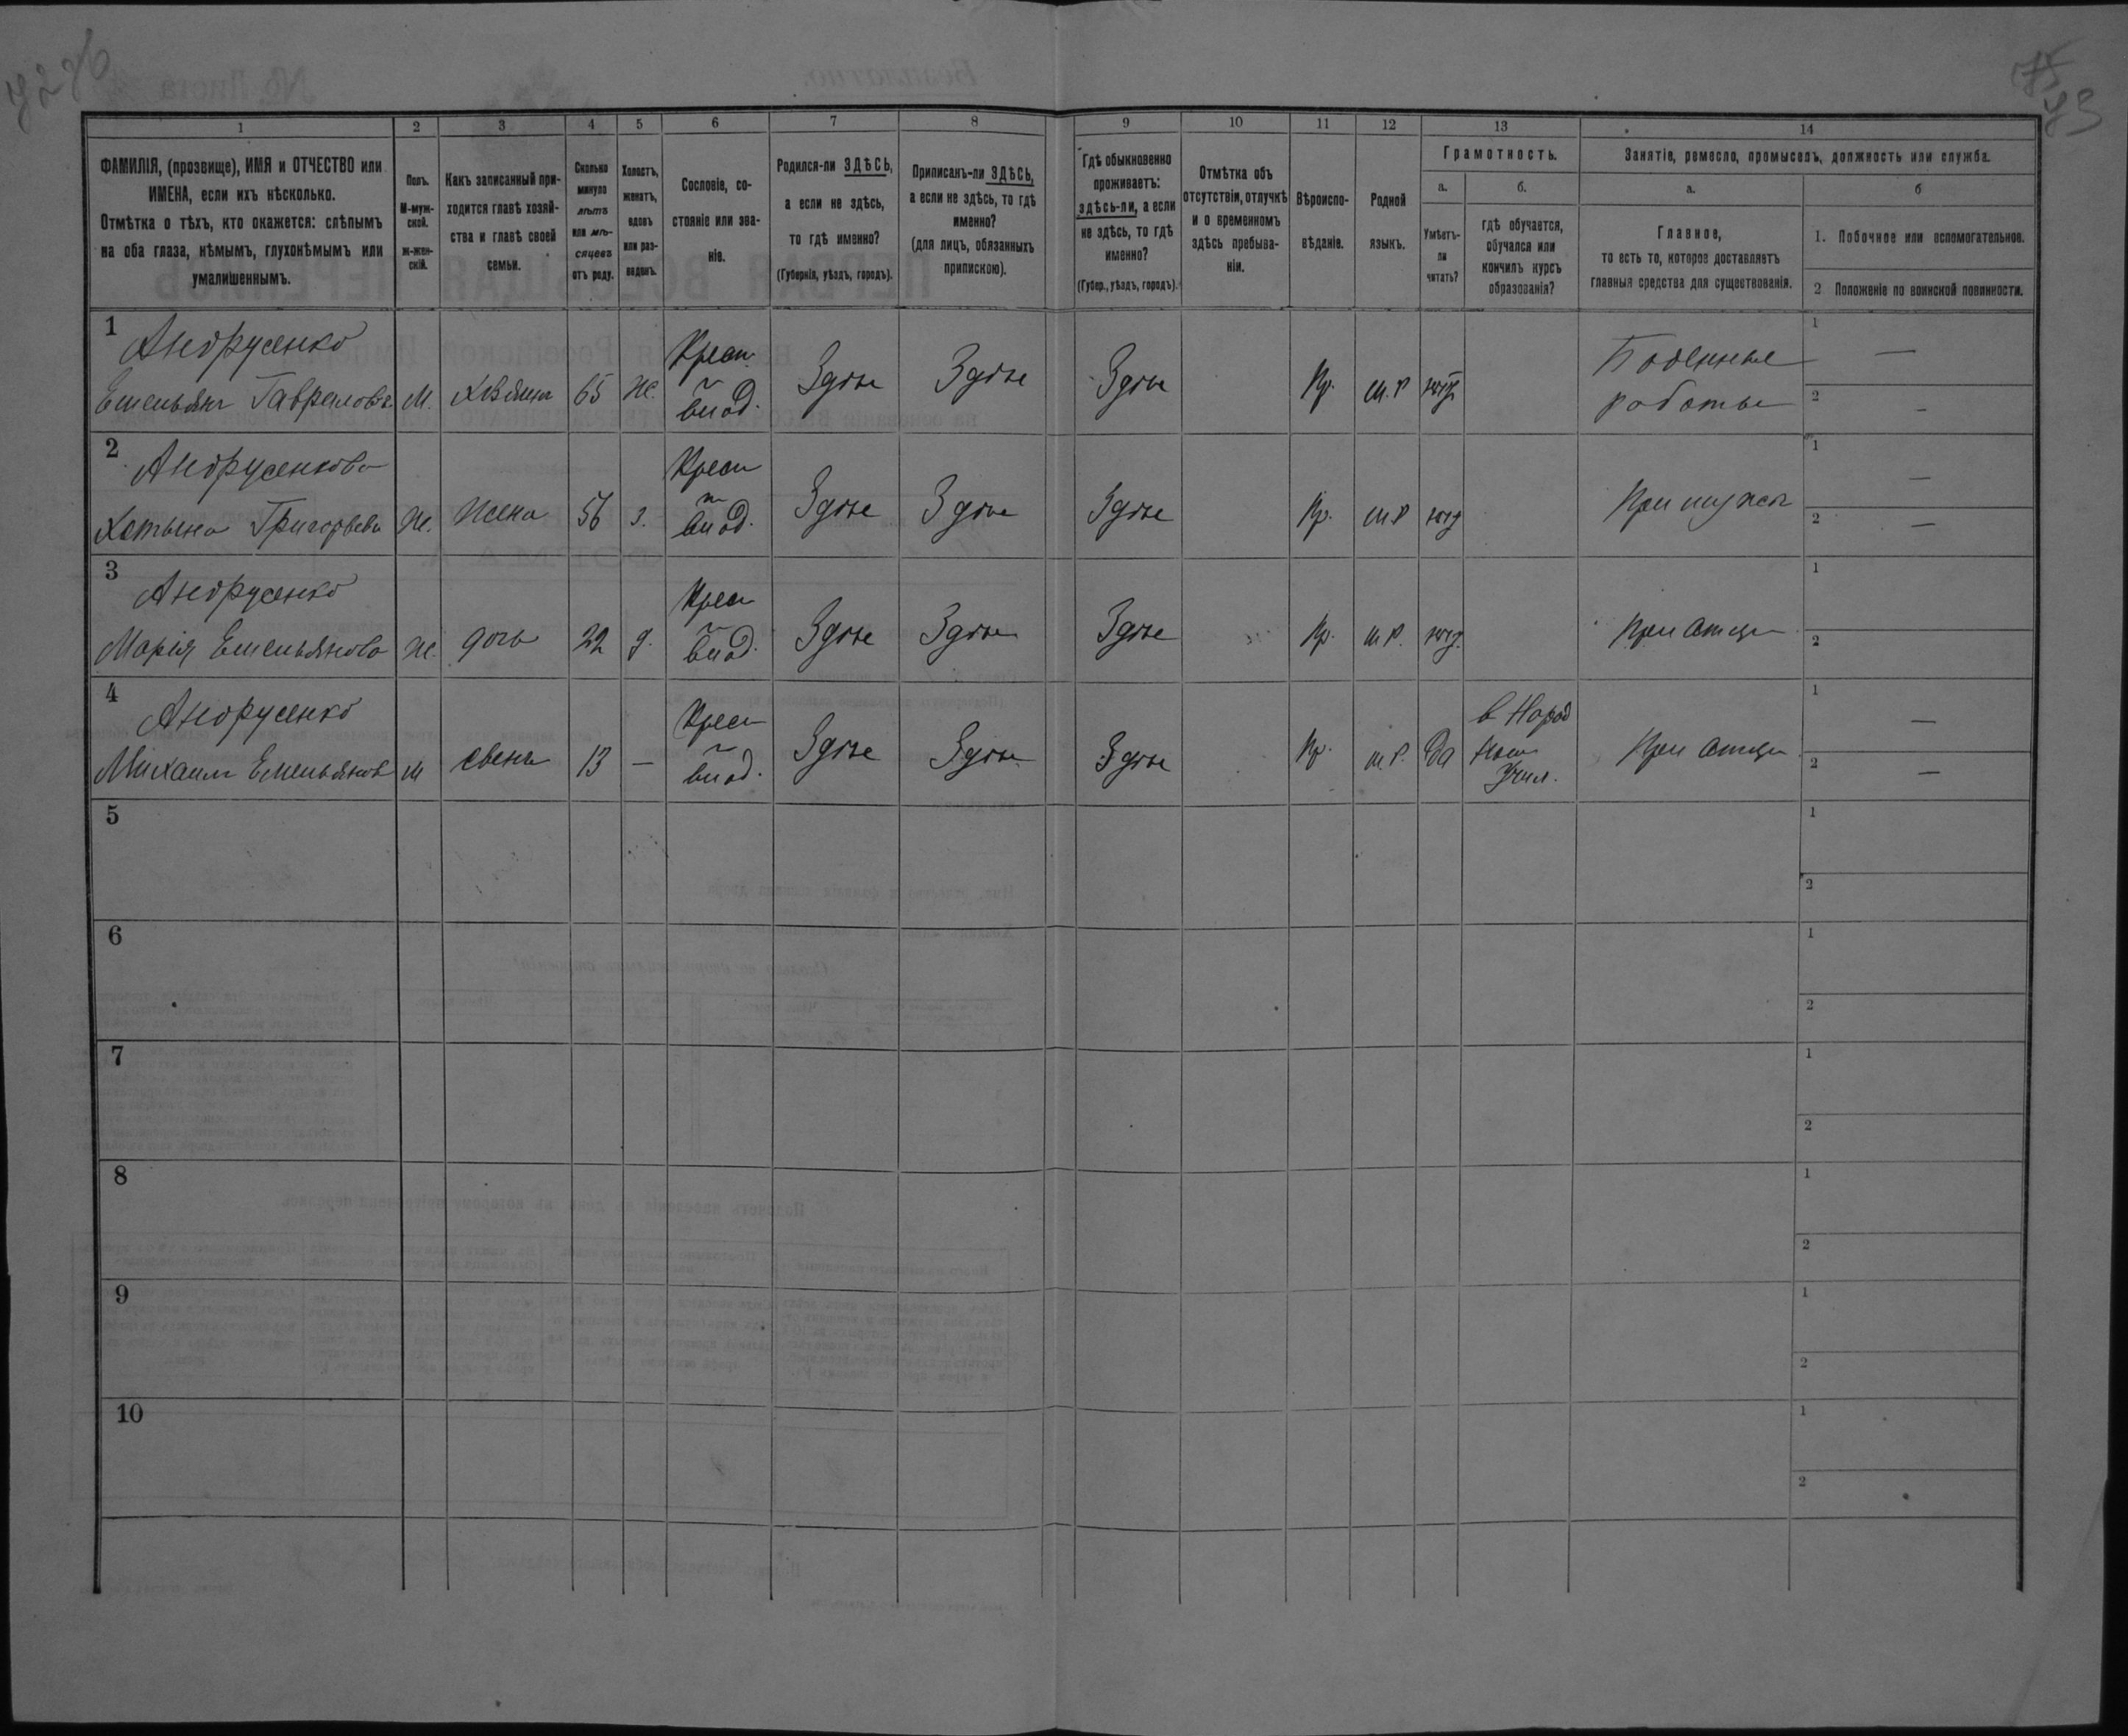 1
2
3
4
5
6
7
8
9
10
11
12
13
14
ФАМИЛІЯ, (прозвище), ИМЯ и ОТЧЕСТВО или
ИМЕНА, если ихъ нѣсколько.
Отмѣтка о тѣхъ, кто окажется: слѣпымъ
на оба глаза, нѣмымъ, глухонѣмымъ или
умалишеннымъ.
Полъ.
М-муж-
ской.
ж-жен-
скій.
Какъ записанный при-
ходится главѣ хозяй-
ства и главѣ своей
семьи.
Сколько
минуло
лѣтъ
или мѣ-
сяцевъ
отъ роду.
Холостъ,
женатъ,
вдовъ
или раз-
веденъ.
Сословіе, со-
стояніе или зва-
ніе.
Родился-ли ЗДѢСЬ,
а если не здѣсь,
то гдѣ именно?
(Губернія, уѣздъ, городъ).
Приписанъ-ли ЗДѢСЬ,
а если не здѣсь, то гдѣ
именно?
(для лицъ, обязанныхъ
припискою).
Гдѣ обыкновенно
проживаетъ:
здѣсь-ли, а если
не здѣсь, то гдѣ
именно?
(Губер., уѣздъ, городъ).
Отмѣтка объ
отсутствіи, отлучкѣ
и о временномъ
здѣсь пребыва-
ніи.
Вѣроиспо-
вѣданіе.
Родной
языкъ.
Грамотность.
а.
б.
Умѣетъ-
ли
читать?
гдѣ обучается,
обучался или
кончилъ курсъ
образованія?
Занятіе, ремесло, промыселъ, должность или служба.
а.
б
Главное,
то есть то, которое доставляетъ
главныя средства для существованія.
1. Побочное или вспомогательное.
2 Положеніе по воинской повинности.
1
Андрусенко
Емельянъ Гаврилов
М.
Хозяинъ
65
Ж.
Крест
Здѣсь
Здѣсь
Здѣсь
Пр.
м.Р
нѣт
Поденные
работы
1 —
2 —
2
Андрусенкова
Григорьева
Ж.
Жена
56
З.
Крест
Здѣсь
Здѣсь
Здѣсь
Пр.
м.Р
При мужѣ
1 —
2 —
3
Андрусенко
Марія Емельянова
Ж.
дочь
22
д.
Крест
Здѣсь
Здѣсь
Здѣсь
Пр.
м.Р.
При отцѣ
1
2
4
Андрусенко
Михаилъ Емельянов
М
сынъ
13
—
Крест
Здѣсь
Здѣсь
Здѣсь
Пр.
м.Р.
Да
в Народ
Учил.
При отцѣ
1 —
2 —
5
1
2
6
1
2
7
1
2
8
1
2
9
1
2
10
1
2